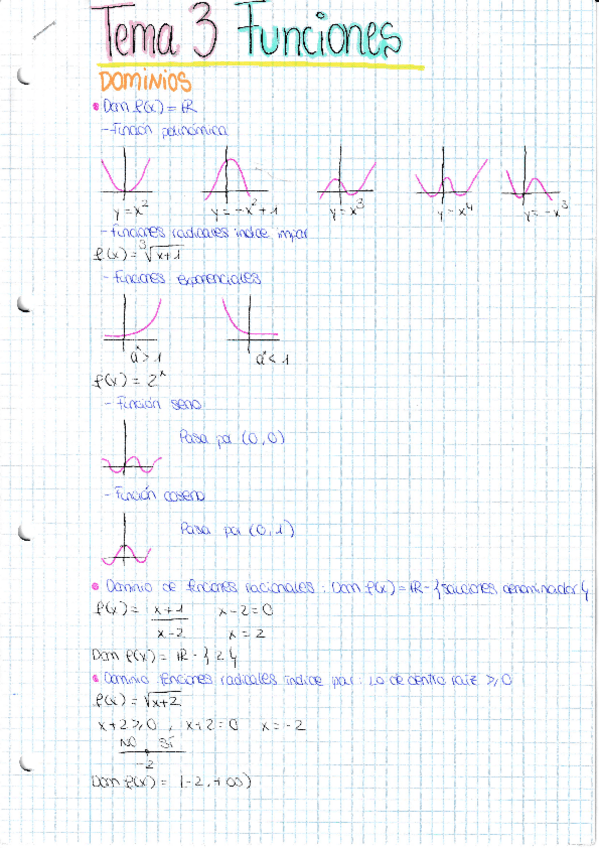 Tema 3 Funciones
DOMINIOS
• Dom f(x) = ℝ
- Función polinómica
y = x² y = -x² + 1 y = x³ y = x⁴ y = -x³
- Funciones radicales índice impar
f(x) = ³√x+1
- Funciones exponenciales
aˣ > 1 aˣ < 1
f(x) = 2ˣ
- Función seno
Pasa por (0,0)
- Función coseno
Pasa por (0,1)
• Dominio de funciones racionales : Dom f(x) = ℝ - {soluciones denominador}
f(x) = x+1 x-2=0
x-2 x = 2
Dom f(x) = ℝ - {2}
• Dominio funciones radicales índice par : Lo de dentro raíz ≥ 0
f(x) = √x+2
x+2 ≥ 0 , x+2 = 0 x = -2
NO SÍ
-2
Dom f(x) = [-2, +∞)